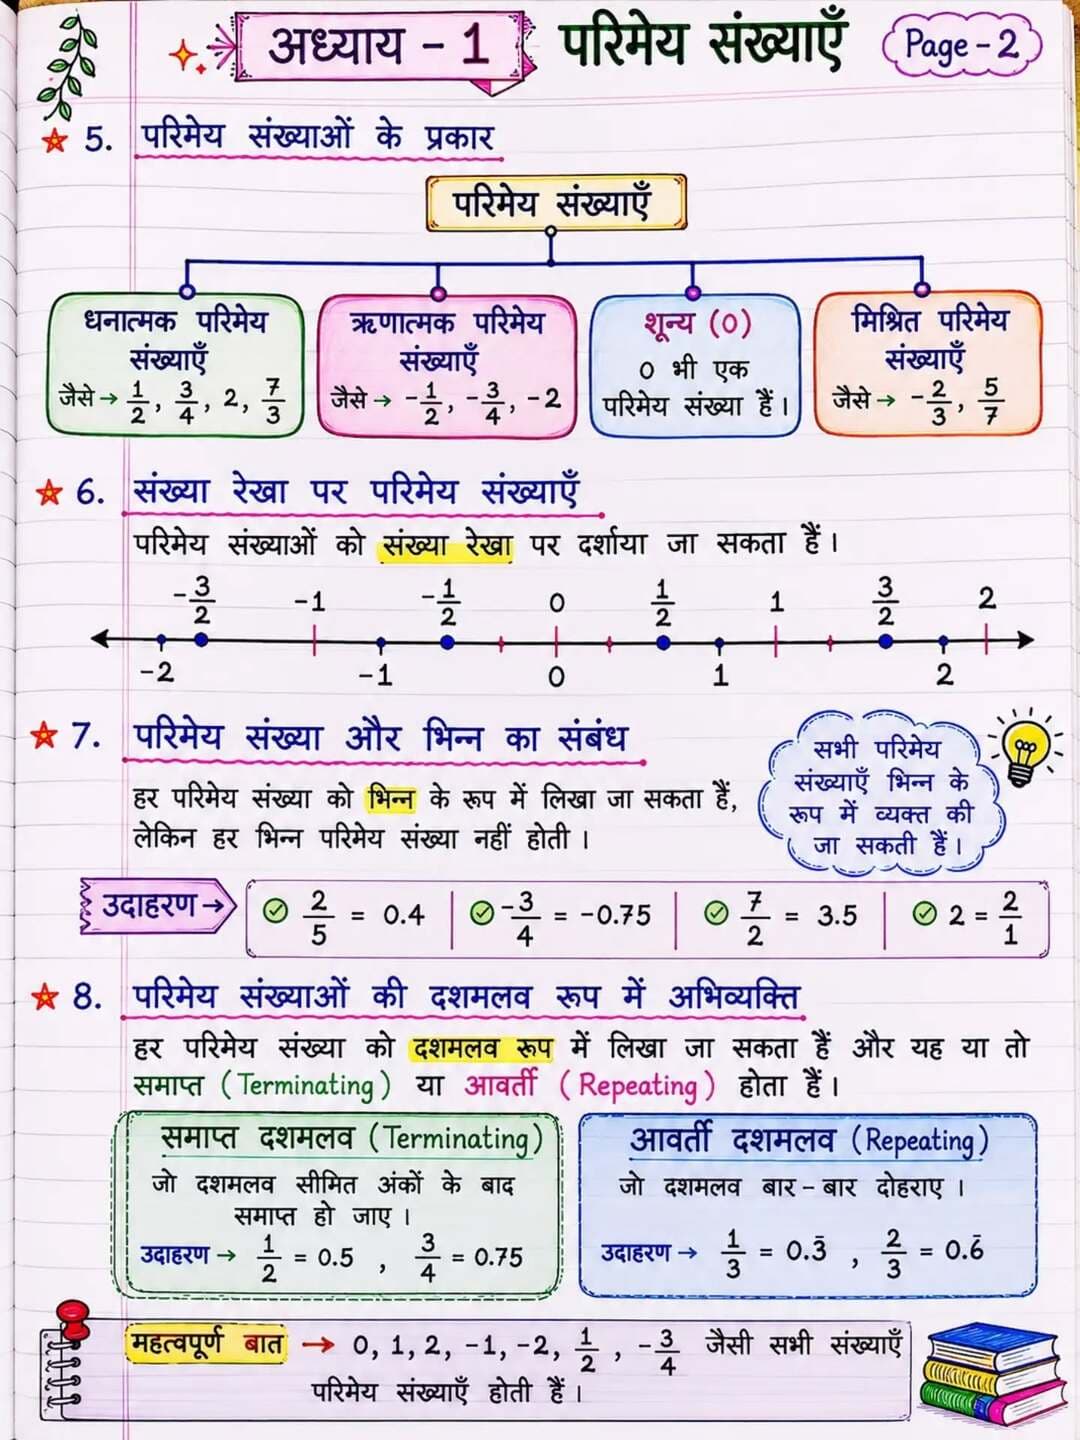 अध्याय - 1 परिमेय संख्याएँ Page - 2
5. परिमेय संख्याओं के प्रकार
परिमेय संख्याएँ
धनात्मक परिमेय
संख्याएँ
जैसे → 1/2, 3/4, 2, 7/3
ऋणात्मक परिमेय
संख्याएँ
जैसे → -1/2, -3/4, -2
शून्य (0)
0 भी एक
परिमेय संख्या हैं।
मिश्रित परिमेय
संख्याएँ
जैसे → -2/3, 5/7
6. संख्या रेखा पर परिमेय संख्याएँ
परिमेय संख्याओं को संख्या रेखा पर दर्शाया जा सकता हैं।
-3/2 -1 -1/2 0 1/2 1 3/2 2
-2 -1 0 1 2
7. परिमेय संख्या और भिन्न का संबंध
हर परिमेय संख्या को भिन्न के रूप में लिखा जा सकता हैं,
लेकिन हर भिन्न परिमेय संख्या नहीं होती।
सभी परिमेय
संख्याएँ भिन्न के
रूप में व्यक्त की
जा सकती हैं।
उदाहरण → 2/5 = 0.4 -3/4 = -0.75 7/2 = 3.5 2 = 2/1
8. परिमेय संख्याओं की दशमलव रूप में अभिव्यक्ति
हर परिमेय संख्या को दशमलव रूप में लिखा जा सकता हैं और यह या तो
समाप्त (Terminating) या आवर्ती (Repeating) होता हैं।
समाप्त दशमलव (Terminating)
जो दशमलव सीमित अंकों के बाद
समाप्त हो जाए।
उदाहरण → 1/2 = 0.5 , 3/4 = 0.75
आवर्ती दशमलव (Repeating)
जो दशमलव बार-बार दोहराए।
उदाहरण → 1/3 = 0.3̄ , 2/3 = 0.6̄
महत्वपूर्ण बात → 0, 1, 2, -1, -2, 1/2, -3/4 जैसी सभी संख्याएँ
परिमेय संख्याएँ होती हैं।